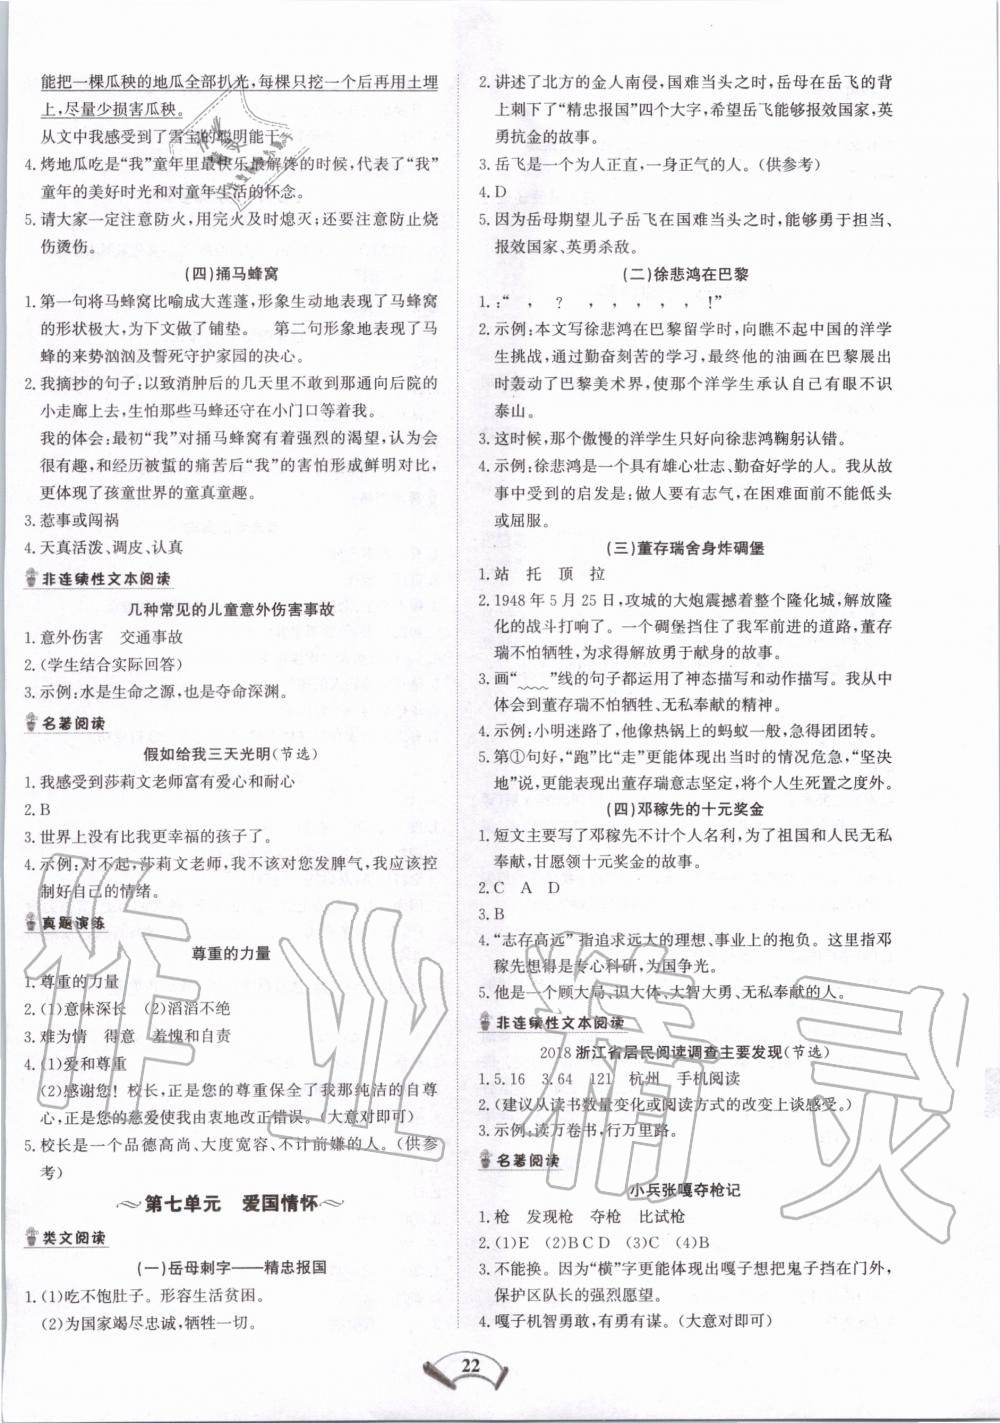 能把一棵瓜秧的地瓜全部扒光,每棵只挖一个后再用土埋
上,尽量少损害瓜秧。
从文中我感受到了雪宝的聪明能干。
4. 烤地瓜吃是“我”童年里最快乐最解馋的时候,代表了“我”
童年的美好时光和对童年生活的怀念。
5. 请大家一定注意防火,用完火及时熄灭;还要注意防止烧
伤烫伤。
(四)捅马蜂窝
1. 第一句将马蜂窝比喻成大莲蓬,形象生动地表现了马蜂窝
的形状极大,为下文做了铺垫。 第二句形象地表现了马
蜂的来势汹汹及誓死守护家园的决心。
2. 我摘抄的句子:以致消肿后的几天里不敢到那通向后院的
小走廊上去,生怕那些马蜂还守在小门口等着我。
我的体会:最初“我”对捅马蜂窝有着强烈的渴望,玩心会
很有趣,和经历被蜇的痛苦后“我”的害怕形成鲜明对比,
更体现了孩童世界的童真童趣。
3. 惹事或闯祸
4. 天真活泼、调皮、认真
非连续性文本阅读
几种常见的儿童意外伤害事故
1. 意外伤害 交通事故
2. (学生结合实际回答)
3. 示例:水是生命之源,也是夺命深渊。
名著阅读
假如给我三天光明(节选)
1. 我感受到莎莉文老师富有爱心和耐心
2. B
3. 世界上没有比我更幸福的孩子了。
4. 示例:对不起,莎莉文老师,我不该对您发脾气,我应该控
制好自己的情绪。
真题演练
尊重的力量
1. 尊重的力量
2. (1)意味深长 (2)滔滔不绝
3. 难为情 得意 羞愧和自责
4. (1)爱和尊重
(2)感谢您!校长,正是您的尊重保全了我那纯洁的自尊
心,正是您的慈爱使我由衷地改正错误。(大意对即可)
5. 校长是一个品德高尚、大度宽容、不计前嫌的人。(供参
考)
第七单元 爱国情怀
类文阅读
(一)岳母刺字——精忠报国
1. (1)吃不饱肚子。形容生活贫困。
(2)为国家竭尽忠诚,牺牲一切。
2. 讲述了北方的金人南侵,国难当头之时,岳母在岳飞的背
上刺下了“精忠报国”四个大字,希望岳飞能够报效国家,英
勇抗金的故事。
3. 岳飞是一个为人正直,一身正气的人。(供参考)
4. D
5. 因为岳母期望儿子岳飞在国难当头之时,能够勇于担当、
报效国家、英勇杀敌。
(二)徐悲鸿在巴黎
1. :“ , ? , , , , !”
2. 示例:本文写徐悲鸿在巴黎留学时,向瞧不起中国的洋学
生挑战,通过勤奋刻苦的学习,最终他的油画在巴黎展出
时轰动了巴黎美术界,使那个洋学生承认自己有眼不识
泰山。
3. 这时候,那个傲慢的洋学生只好向徐悲鸿鞠躬认错。
4. 示例:徐悲鸿是一个具有雄心壮志、勤奋好学的人。我从故
事中受到的启发是:做人要有志气,在困难面前不能低头
或屈服。
(三)董存瑞舍身炸碉堡
1. 站 托 顶 拉
2. 1948年5月25日,攻城的大炮震撼着整个隆化城,解放隆
化的战斗打响了。一个碉堡挡住了我军前进的道路,董存
瑞不怕牺牲,为求得解放勇于献身的故事。
3. 画“﹏﹏”线的句子都运用了神态描写和动作描写。我从中
体会到董存瑞不怕牺牲、无私奉献的精神。
4. 示例:小明迷路了,他像热锅上的蚂蚁一般,急得团团转。
5. 第①句好,“跑”比“走”更能体现出当时的情况危急,“坚决
地”说,更能表现出董存瑞意志坚定,将个人生死置之度外。
(四)邓稼先的十元奖金
1. 短文主要写了邓稼先不计个人名利,为了祖国和人民无私
奉献,甘愿领十元奖金的故事。
2. C A D
3. B
4. “志存高远”指追求远大的理想、事业上的抱负。这里指邓
稼先想得是专心科研,为国争光。
5. 他是一个顾大局、识大体、大智大勇、无私奉献的人。
非连续性文本阅读
2018浙江省居民阅读调查主要发现(节选)
1. 5.16 3.64 121 杭州 手机阅读
2. (建议从读书数量变化或阅读方式的改变上谈感受。)
3. 示例:读万卷书,行万里路。
名著阅读
小兵张嘎夺枪记
1. 枪 发现枪 夺枪 比试枪
2. (1)E (2)BCD (3)A (4)F
3. 不能换。因为“横”字更能体现出嘎子想把鬼子挡在门外,
保护区队长的强烈愿望。
4. 嘎子机智勇敢,有勇有谋。(大意对即可)
22
作业精灵